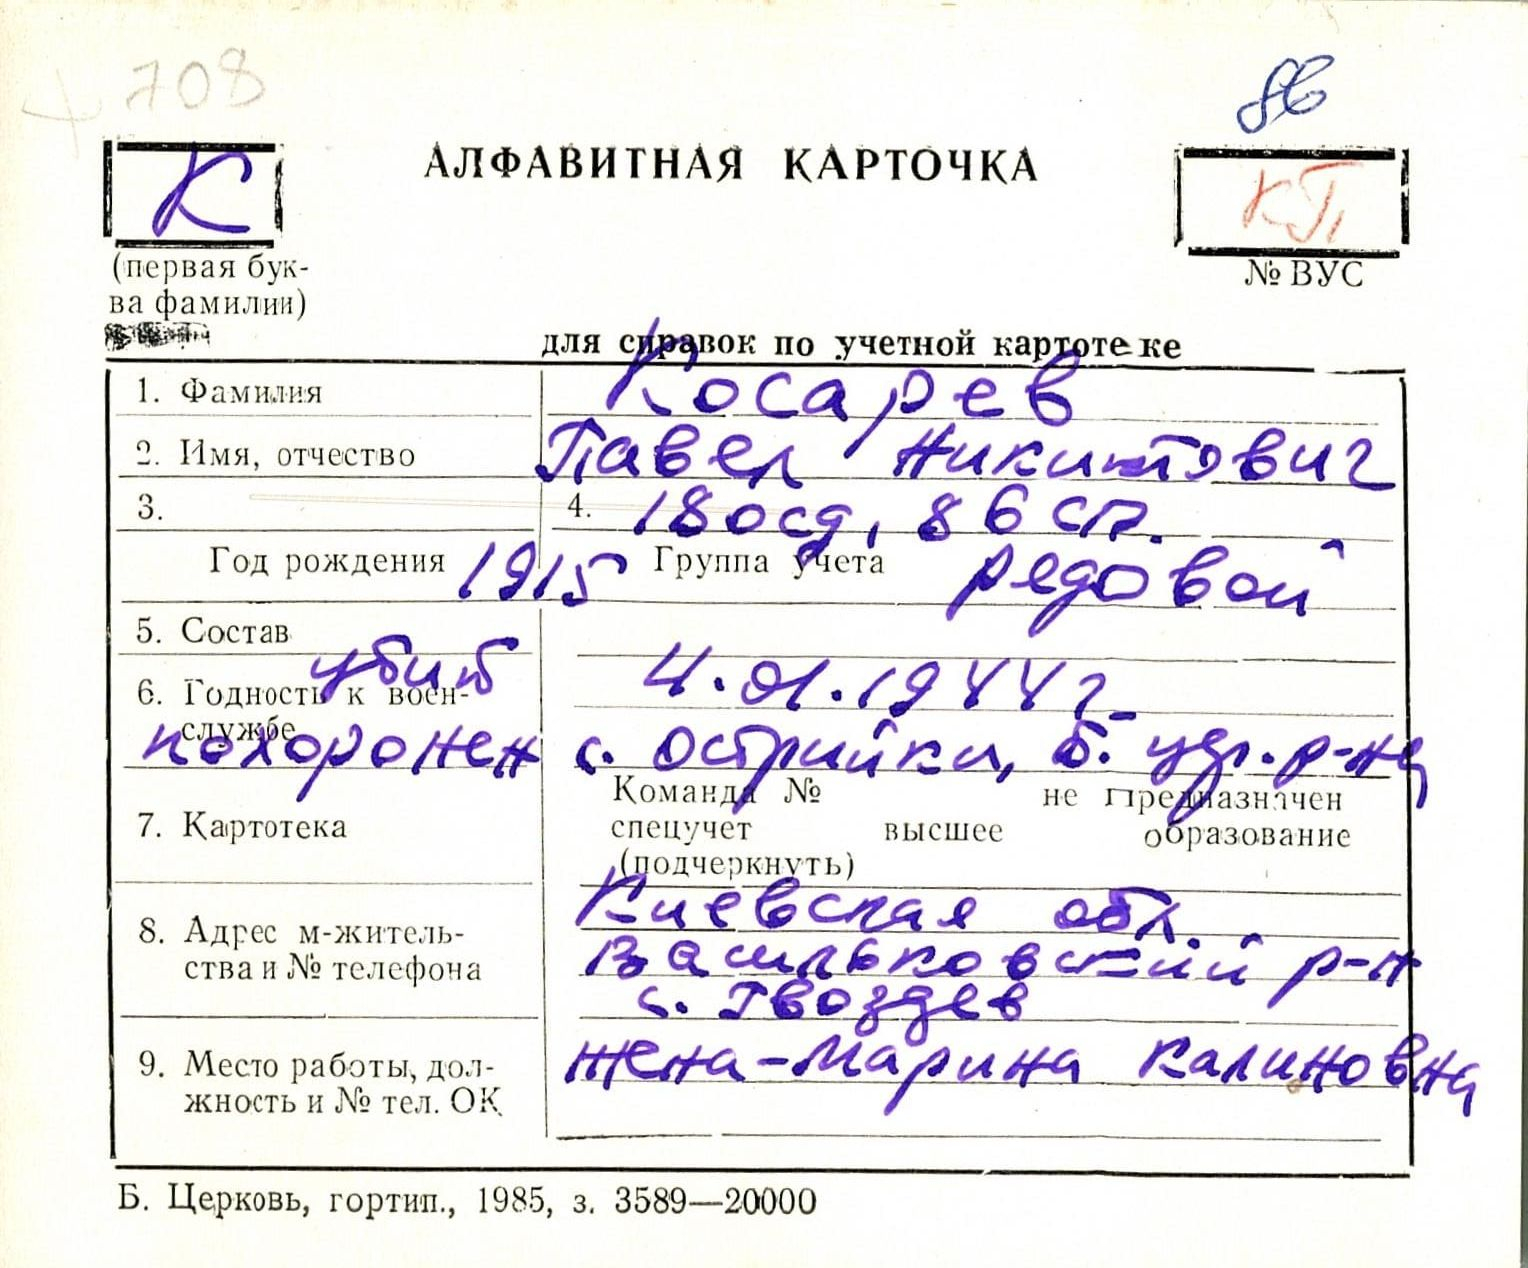 708
86
К
АЛФАВИТНАЯ КАРТОЧКА
КП
(первая бук-
ва фамилии)
№ ВУС
для справок по учетной картотеке
1. Фамилия Косарев
2. Имя, отчество Павел Никитович
3. 4. 180сд, 86 сп.
Год рождения 1915 Группа учета рядовой
5. Состав
убит 4.01.1944г.
6. Годность к воен-
службе
похоронен с. Острийки, Б. цер. р-на
Команда № не предназначен
7. Картотека
спецучет высшее образование
(подчеркнуть)
Киевская обл.
8. Адрес м-житель-
ства и № телефона
Васильковский р-н
с. Гвоздев
9. Место работы, дол-
жность и № тел. ОК
жена-Марина Калиновна
Б. Церковь, гортип., 1985, з. 3589—20000